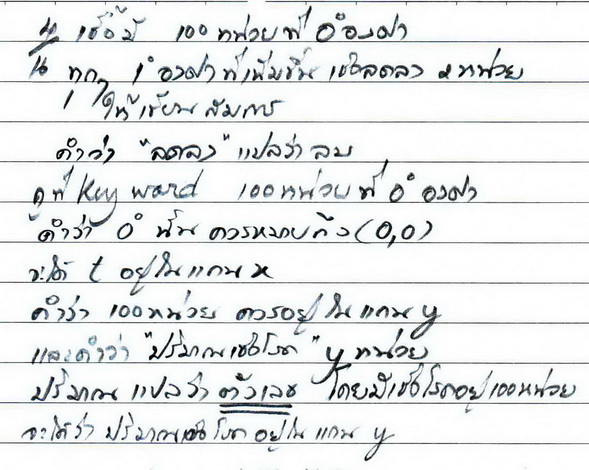 มีเชื้อมี 100 หน่วยที่ 0 องศา
ทุกๆ 1 องศาที่เพิ่มขึ้น เชื้อลดลง 2 หน่วย
ให้เขียนสมการ
คำว่า "ลดลง" แปลว่า ลบ
ดูที่ Key word 100 หน่วย ที่ 0 องศา
คำว่า 0 นั้น ควรหมายถึง (0,0)
จะได้ t อยู่ในแกน x
คำว่า 100 หน่วย ควรอยู่ในแกน y
และคำว่า "ปริมาณเชื้อโรค" y หน่วย
ปริมาณ แปลว่า ตัวเลข โดยมีเชื้อโรคอยู่ 100 หน่วย
จะได้ว่า ปริมาณเชื้อโรค อยู่ใน แกน y